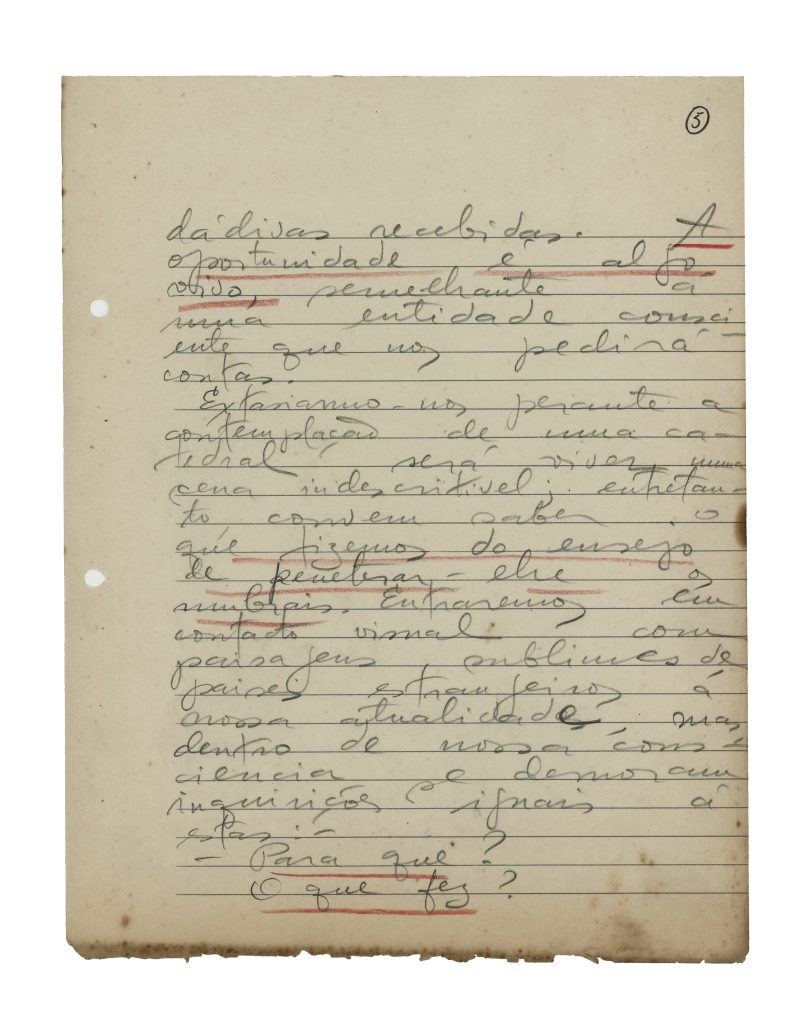 5
dádivas recebidas. A
oportunidade é algo
vivo, semelhante á
umá entidade consci-
ente que nos pedirá
contas.
Extasiarmo-nos perante a
contemplação de uma ca-
tedral será viver numa
cena indescritivel; entretan-
to convem saber o
que fizemos do ensejo
de penetrar-lhe os
umbrais. Entraremos em
contacto visual com
paisagens sublimes de
paises estrangeiros á
nossa atualidade, mas
dentro de nossa cons-
ciencia se demoram
inquirições iguais á
estas:-
- Para que?
O que fez?